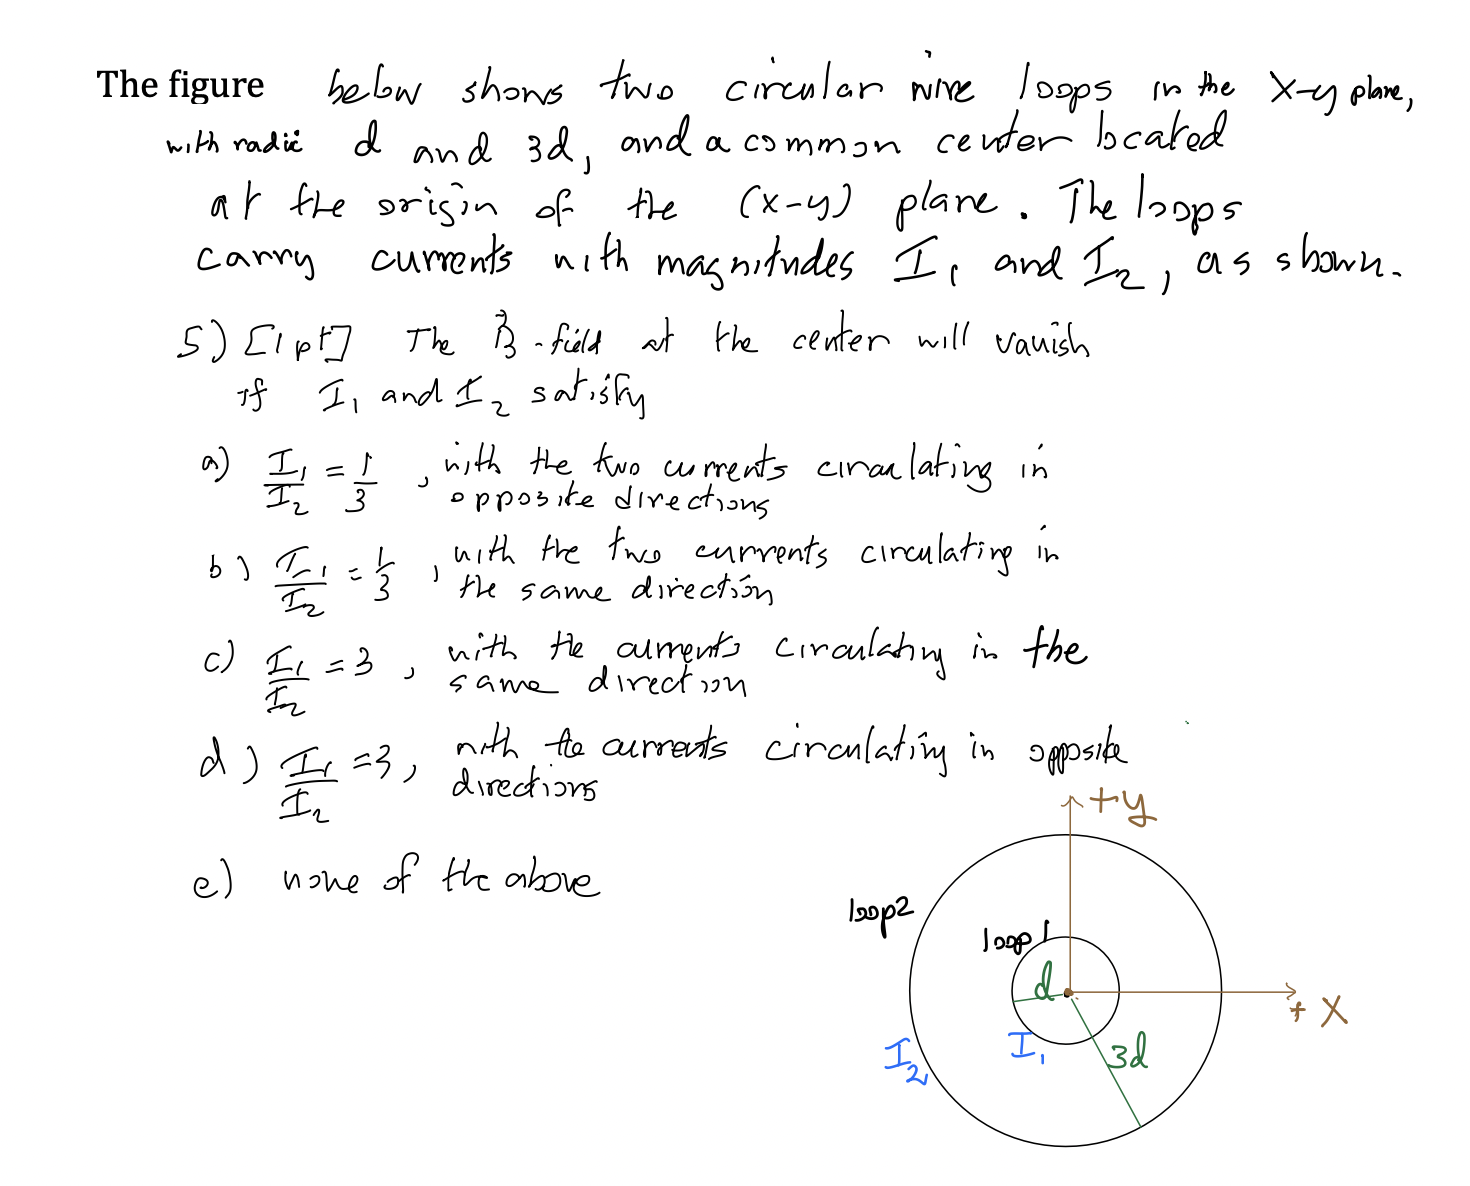 The figure below shows two circular wire loops in the x-y plane,
with radii d and 3d, and a common center located
at the origin of the (x-y) plane. The loops
carry currents with magnitudes I₁ and I₂, as shown.
5) [1pt] The B⃗-field at the center will vanish
if I₁ and I₂ satisfy
a) I₁/I₂ = 1/3, with the two currents circulating in
opposite directions
b) I₁/I₂ = 1/3, with the two currents circulating in
the same direction
c) I₁/I₂ = 3, with the currents circulating in the
same direction
d) I₁/I₂ = 3, with the currents circulating in opposite
directions
e) none of the above
+y
loop2
loop1
d
+X
I₂
I₁
3d